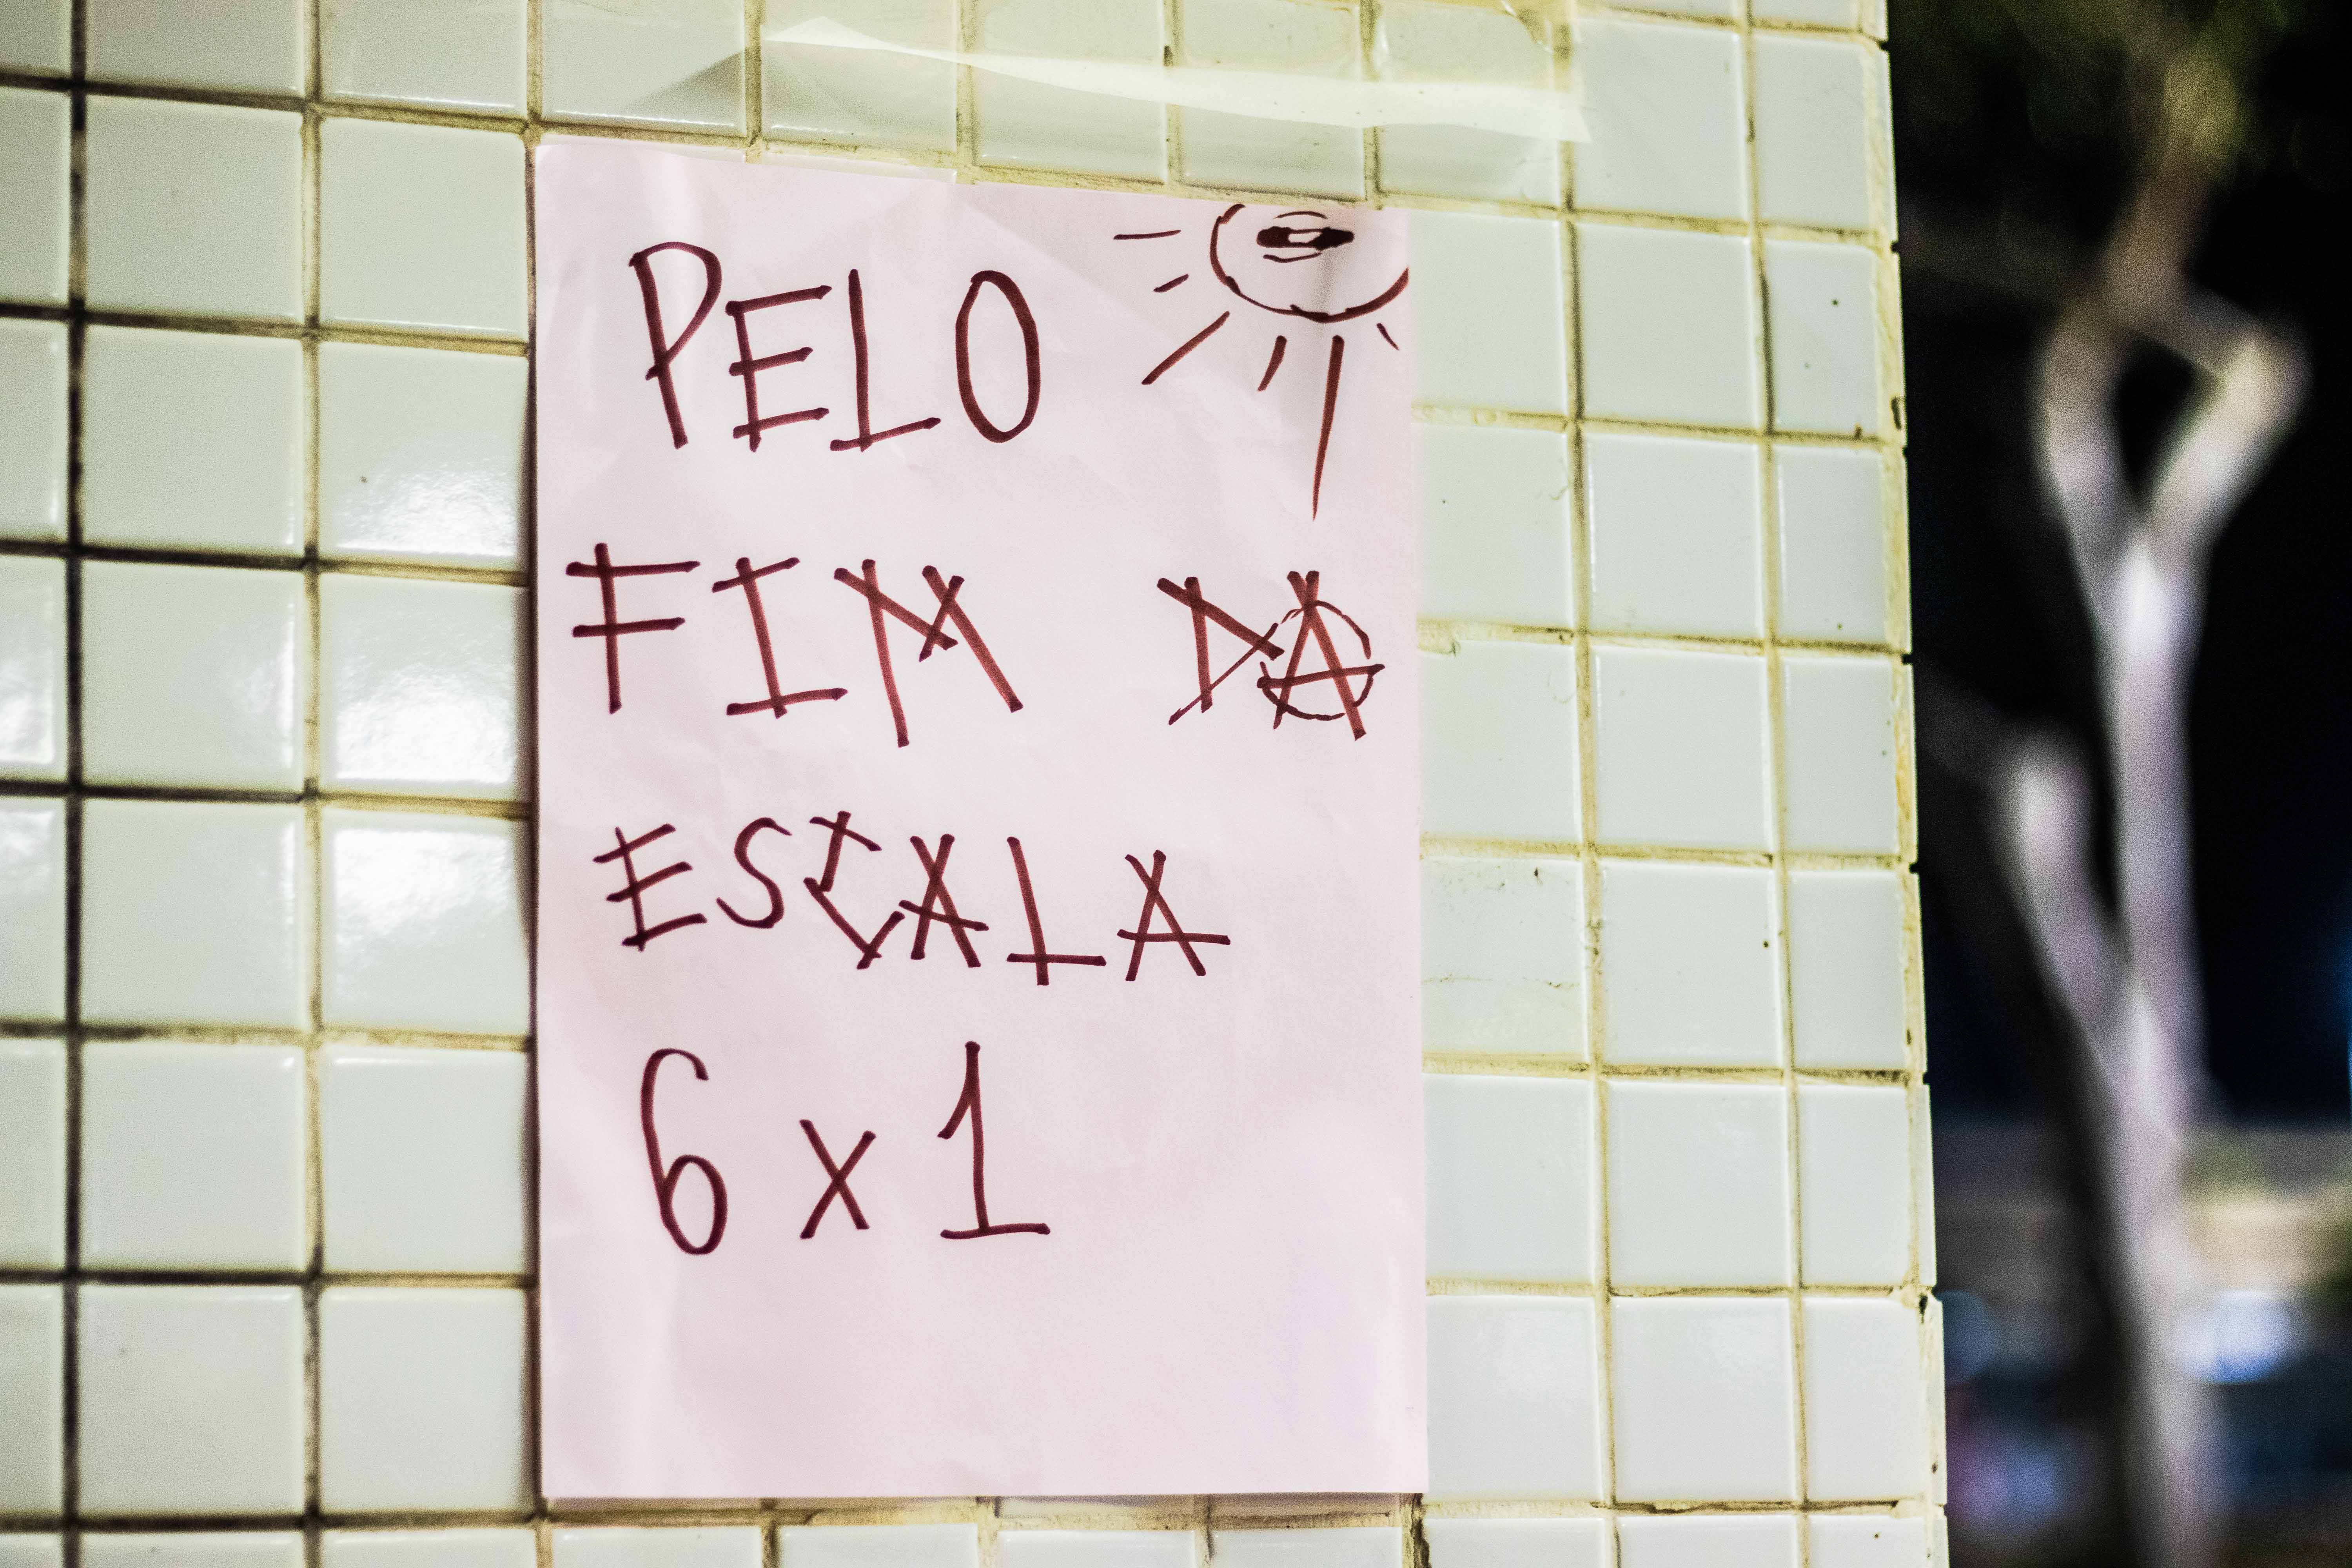 PELO
FIM DA
ESCALA
6 x 1